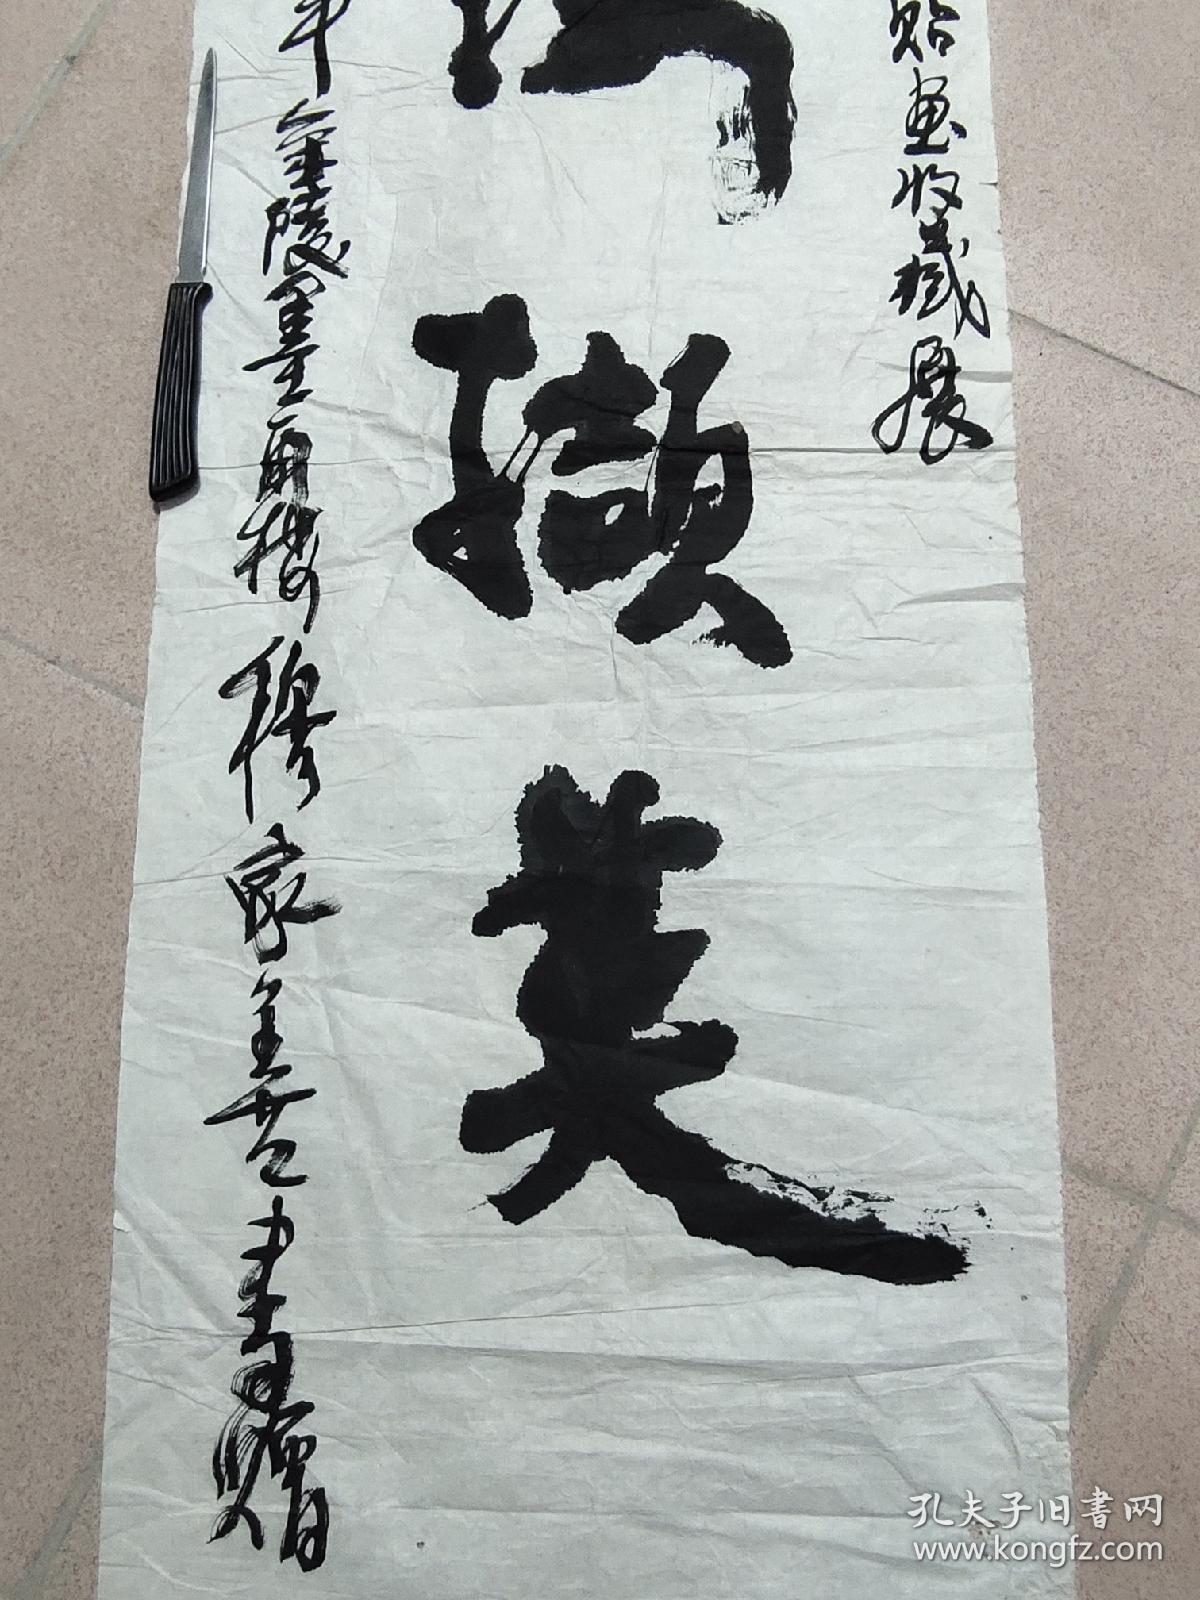 贻画收藏展
撷英
年金陵墨雨楼穆家善书赠
孔夫子旧书网
www.kongfz.com